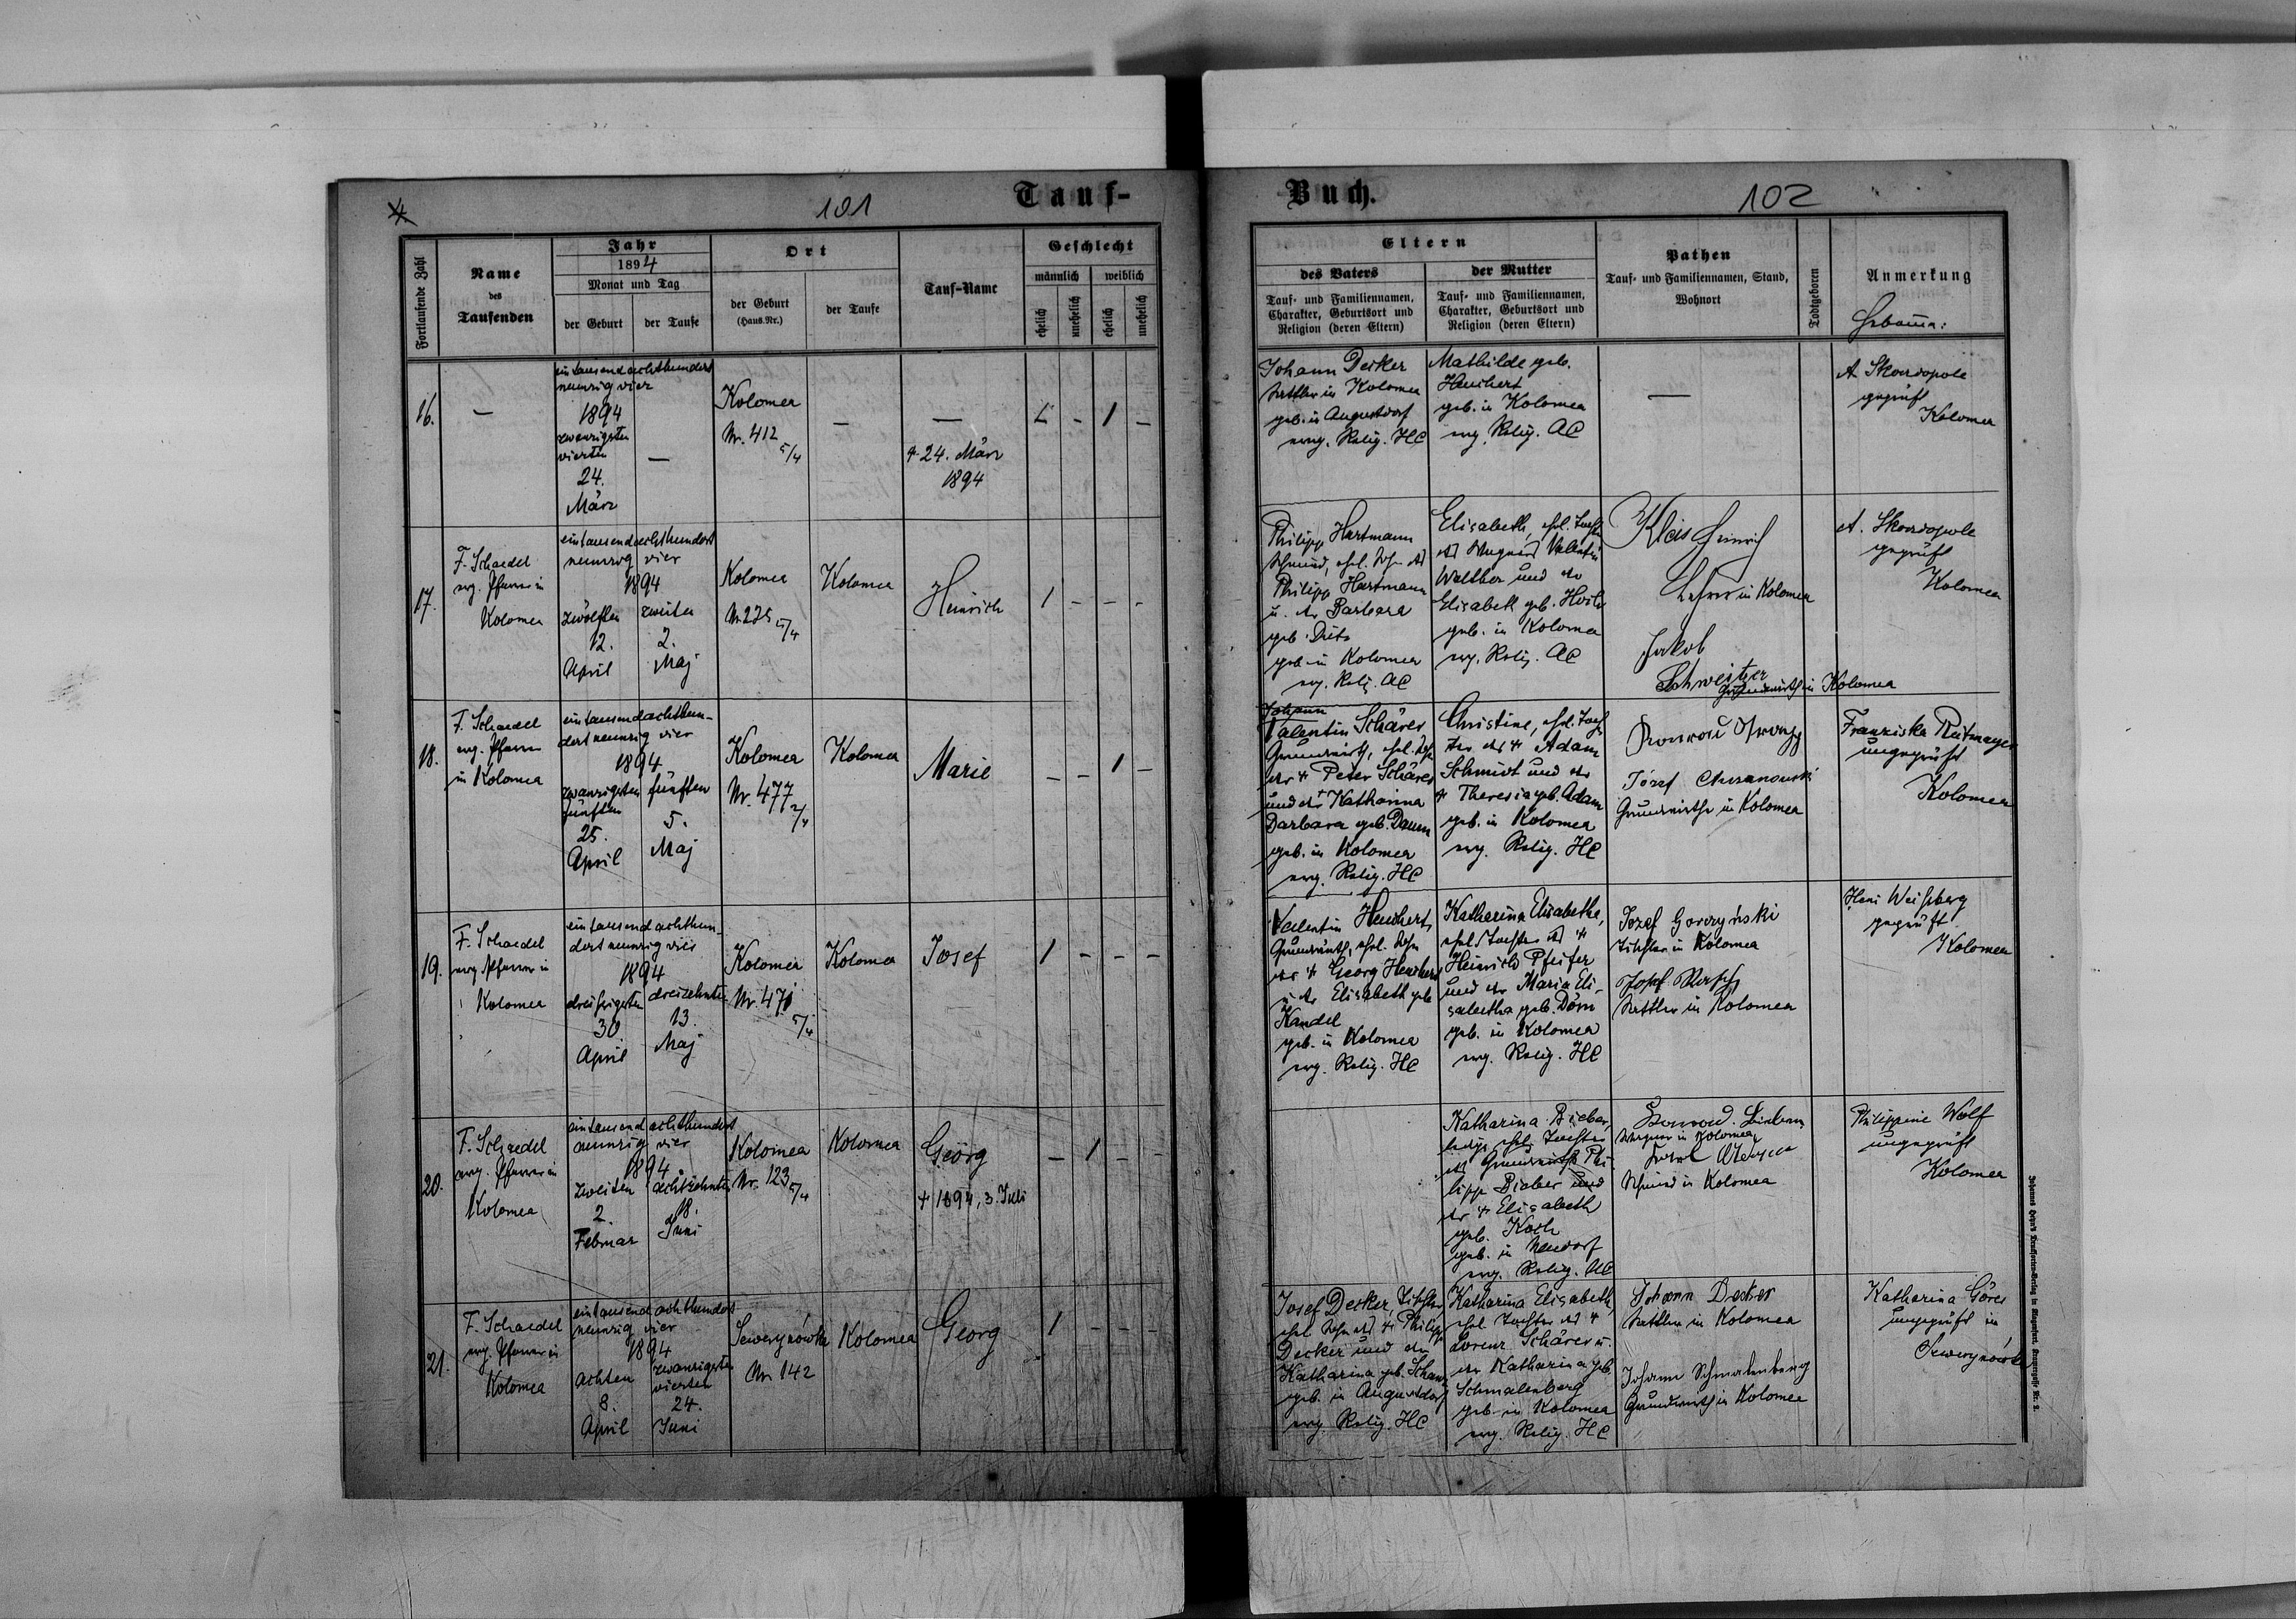 101
Tauf-
Fortlaufende Zahl
Name
des
Taufenden
Jahr
1894
Monat und Tag
der Geburt
der Taufe
Ort
der Geburt
(Haus-Nr.)
der Taufe
Tauf-Name
Geschlecht
männlich
weiblich
ehelich
unehelich
ehelich
unehelich
16.
—
eintausendachthundert
neunzig vier
1894
zwanzigsten
vierten
24.
März
—
Kolomea
Nr. 412
5/4
—
—
+ 24. März
1894
- 1 -
17.
F. Schaedel
evg. Pfarrer in
Kolomea
eintausendachthundert
neunzig vier
1894
zwölften
12.
April
zweiten
2.
Maj
Kolomea
Nr. 225 5/4
Kolomea
Heinrich
1 - - -
18.
F. Schaedel
evg. Pfarrer
in Kolomea
eintausendachthun-
dert neunzig vier
1894
zwanzigsten
fünften
25.
April
fünften
5.
Maj
Kolomea
Nr. 477
2/4
Kolomea
Marie
- - 1 -
19.
F. Schaedel
evg. Pfarrer in
Kolomea
eintausendachthun-
dert neunzig vier
1894
dreißigsten
30
April
dreizehnten
13.
Maj
Kolomea
Nr. 471
5/4
Kolomea
Josef
1 - - -
20.
F. Schaedel
evg. Pfarrer in
Kolomea
eintausendachthundert
neunzig vier
1894
zweiten
2.
Februar
achtzehnten
18.
Juni
Kolomea
Nr. 123 5/4
Kolomea
Georg
+ 1894, 3. Juli
- 1 - -
21.
F. Schaedel
evg. Pfarrer in
Kolomea
eintausendachthundert
neunzig vier
1894
achten
8.
April
zwanzigsten
vierten
24.
Juni
Sewerynówka
Nr. 142
Kolomea
Georg
1 - - -
Buch.
102
Eltern
des Vaters
Tauf- und Familiennamen,
Charakter, Geburtsort und
Religion (deren Eltern)
der Mutter
Tauf- und Familiennamen,
Charakter, Geburtsort und
Religion (deren Eltern)
Pathen
Tauf- und Familiennamen, Stand,
Wohnort
Todtgeboren
Anmerkung
Hebamme:
Johann Decker
Sattler in Kolomea
geb. in Augustdorf
evg. Relig. HC
Mathilde geb.
Heuchert
geb. in Kolomea
evg. Relig. AC
—
geprüft
Kolomea
Philipp Hartmann
Schmied, ehel. Sohn des
Philipp Hartmann
u. der Barbara
geb.
geb. in Kolomea
evg. Relig. AC
Elisabeth, ehel. Tochter
des Wagners Valentin
Walther und der
Elisabeth geb.
geb. in Kolomea
evg. Relig. AC
Heinrich
Lehrer in Kolomea
Jakob
Schweitzer
Grundwirth in Kolomea
geprüft
Kolomea
Johann
Valentin Schärer
Grundwirth, ehel. Sohn
des + Peter Schärer
und der + Katharina
Barbara geb. Daum
geb. in Kolomea
evg. Relig. HC
Christine, ehel. Toch-
ter des + Adam
Schmidt und der
+ Theresia geb. Adam
geb. in Kolomea
evg. Relig. HC
Józef
Grundwirthe in Kolomea
Franziska
ungeprüft
Kolomea
Valentin Heuchert,
Grundwirth, ehel. Sohn
des + Georg Heuchert
u. der Elisabeth geb
Kandel
geb. in Kolomea
evg. Relig. HC
Katharina Elisabetha,
ehel. Tochter des +
Heinrich Pfeifer
und der Maria Eli-
sabetha geb. Dörn
geb. in Kolomea
evg. Relig. HC
Jozef Gorzyński
Tischler in Kolomea
Josef
Sattler in Kolomea
Weißberg
geprüft
Kolomea
Katharina Bieber,
ledige ehel. Tochter
des Grundwirth Phi-
lipp Bieber und
der + Elisabeth
geb. Koch
geb. in Neudorf
evg. Relig. AC
Wagner in Kolomea
Schmied in Kolomea
Philippine Wolf
ungeprüft
Kolomea
Josef Decker, Tischler
ehel. Sohn des + Philipp
Decker und der
Katharina geb.
geb. in Augustdorf
evg. Relig. HC
Katharina Elisabeth,
ehel. Tochter des +
Lorenz Schärer u.
der Katharina geb.
Schmalenberg
geb. in Kolomea
evg. Relig. HC
Johann Decker
Sattler in Kolomea
Johann Schmalenberg
Grundwirth in Kolomea
Katharina
ungeprüft in
Sewerynówka